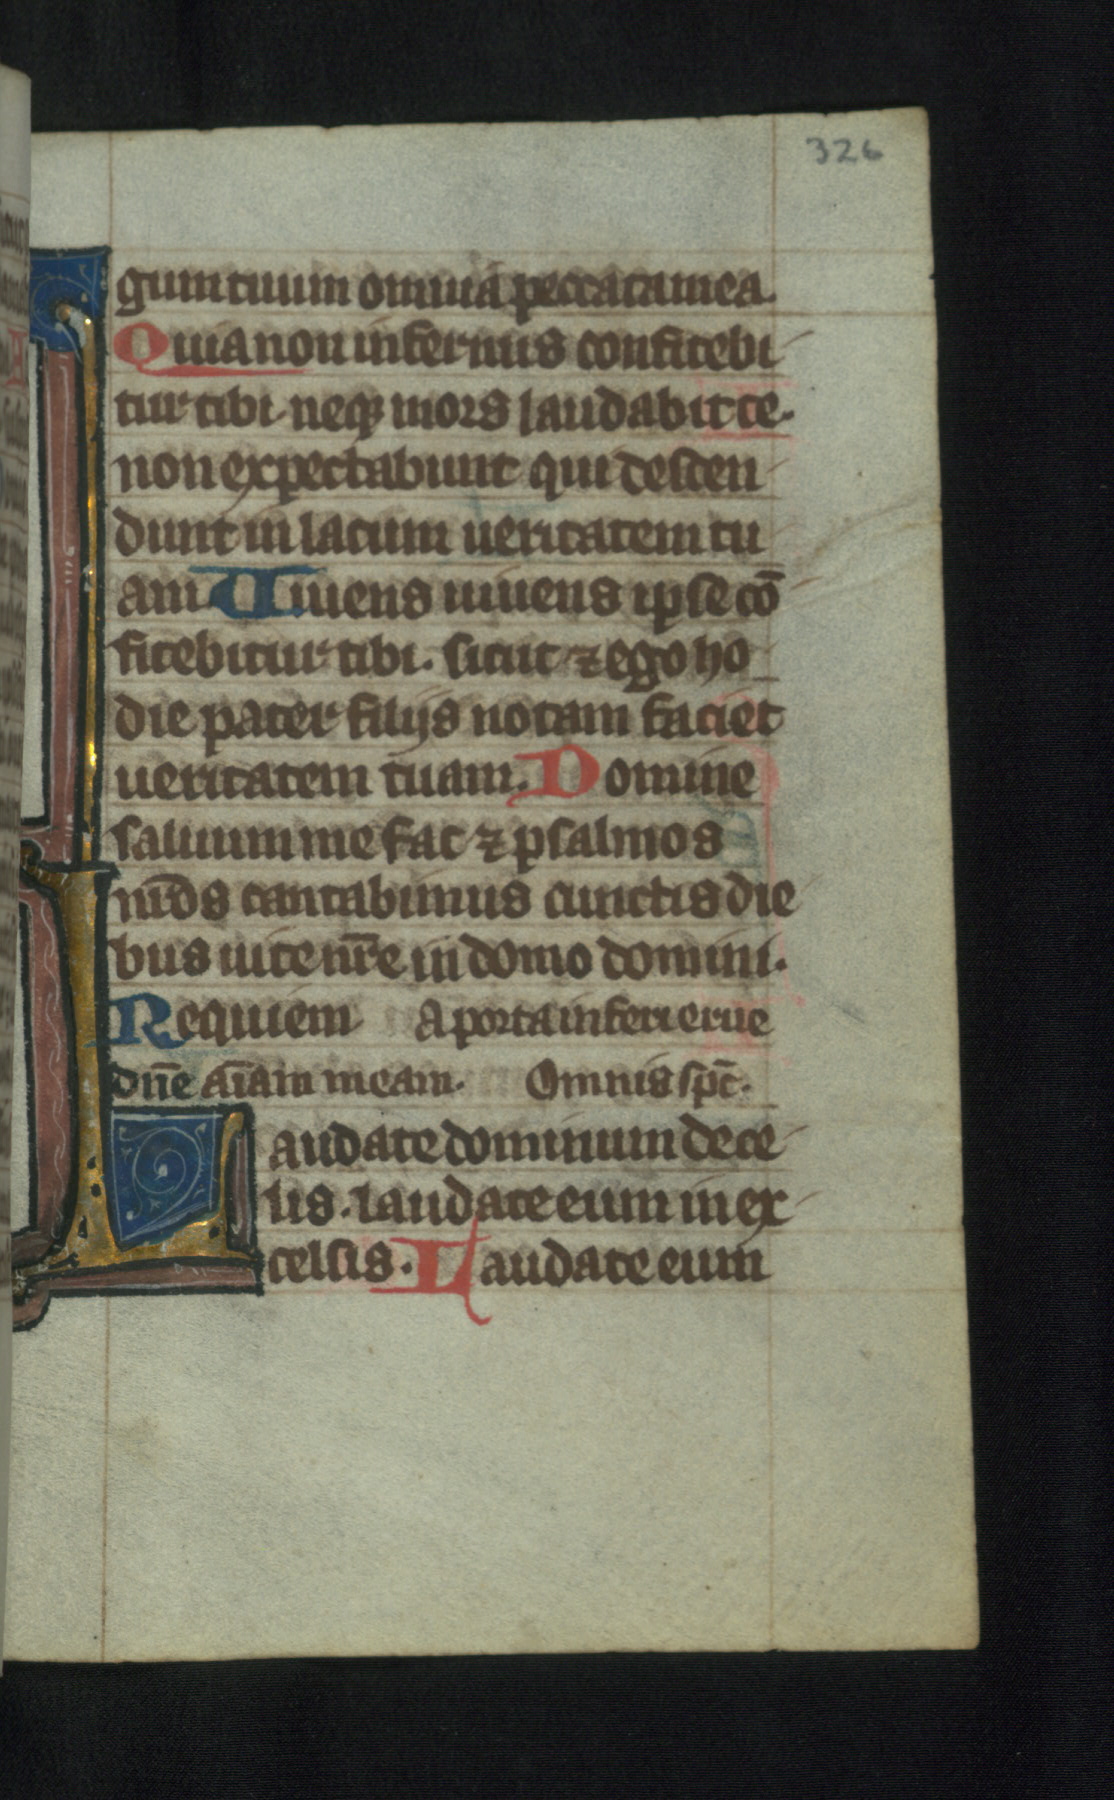 326
gum tuum omnia peccata mea
Quia non infernus confitebi
tur tibi neqꝫ mors laudabit te.
non expectabunt qui descen
dunt in lacum ueritatem tu
am Uiuens uiuens ipse cō
fitebitur tibi. sicut ⁊ ego ho
die pater filijs notam faciet
ueritatem tuam. Domine
saluum me fac ⁊ psalmos
nr̄os cantabimus cunctis die
bus uite nr̄e in domo domini.
Requiem A porta inferi erue
dn̄e aīam meam. Omnis sp̄c.
Laudate dominum de ce
lis. laudate eum in ex
celsis. Laudate eum